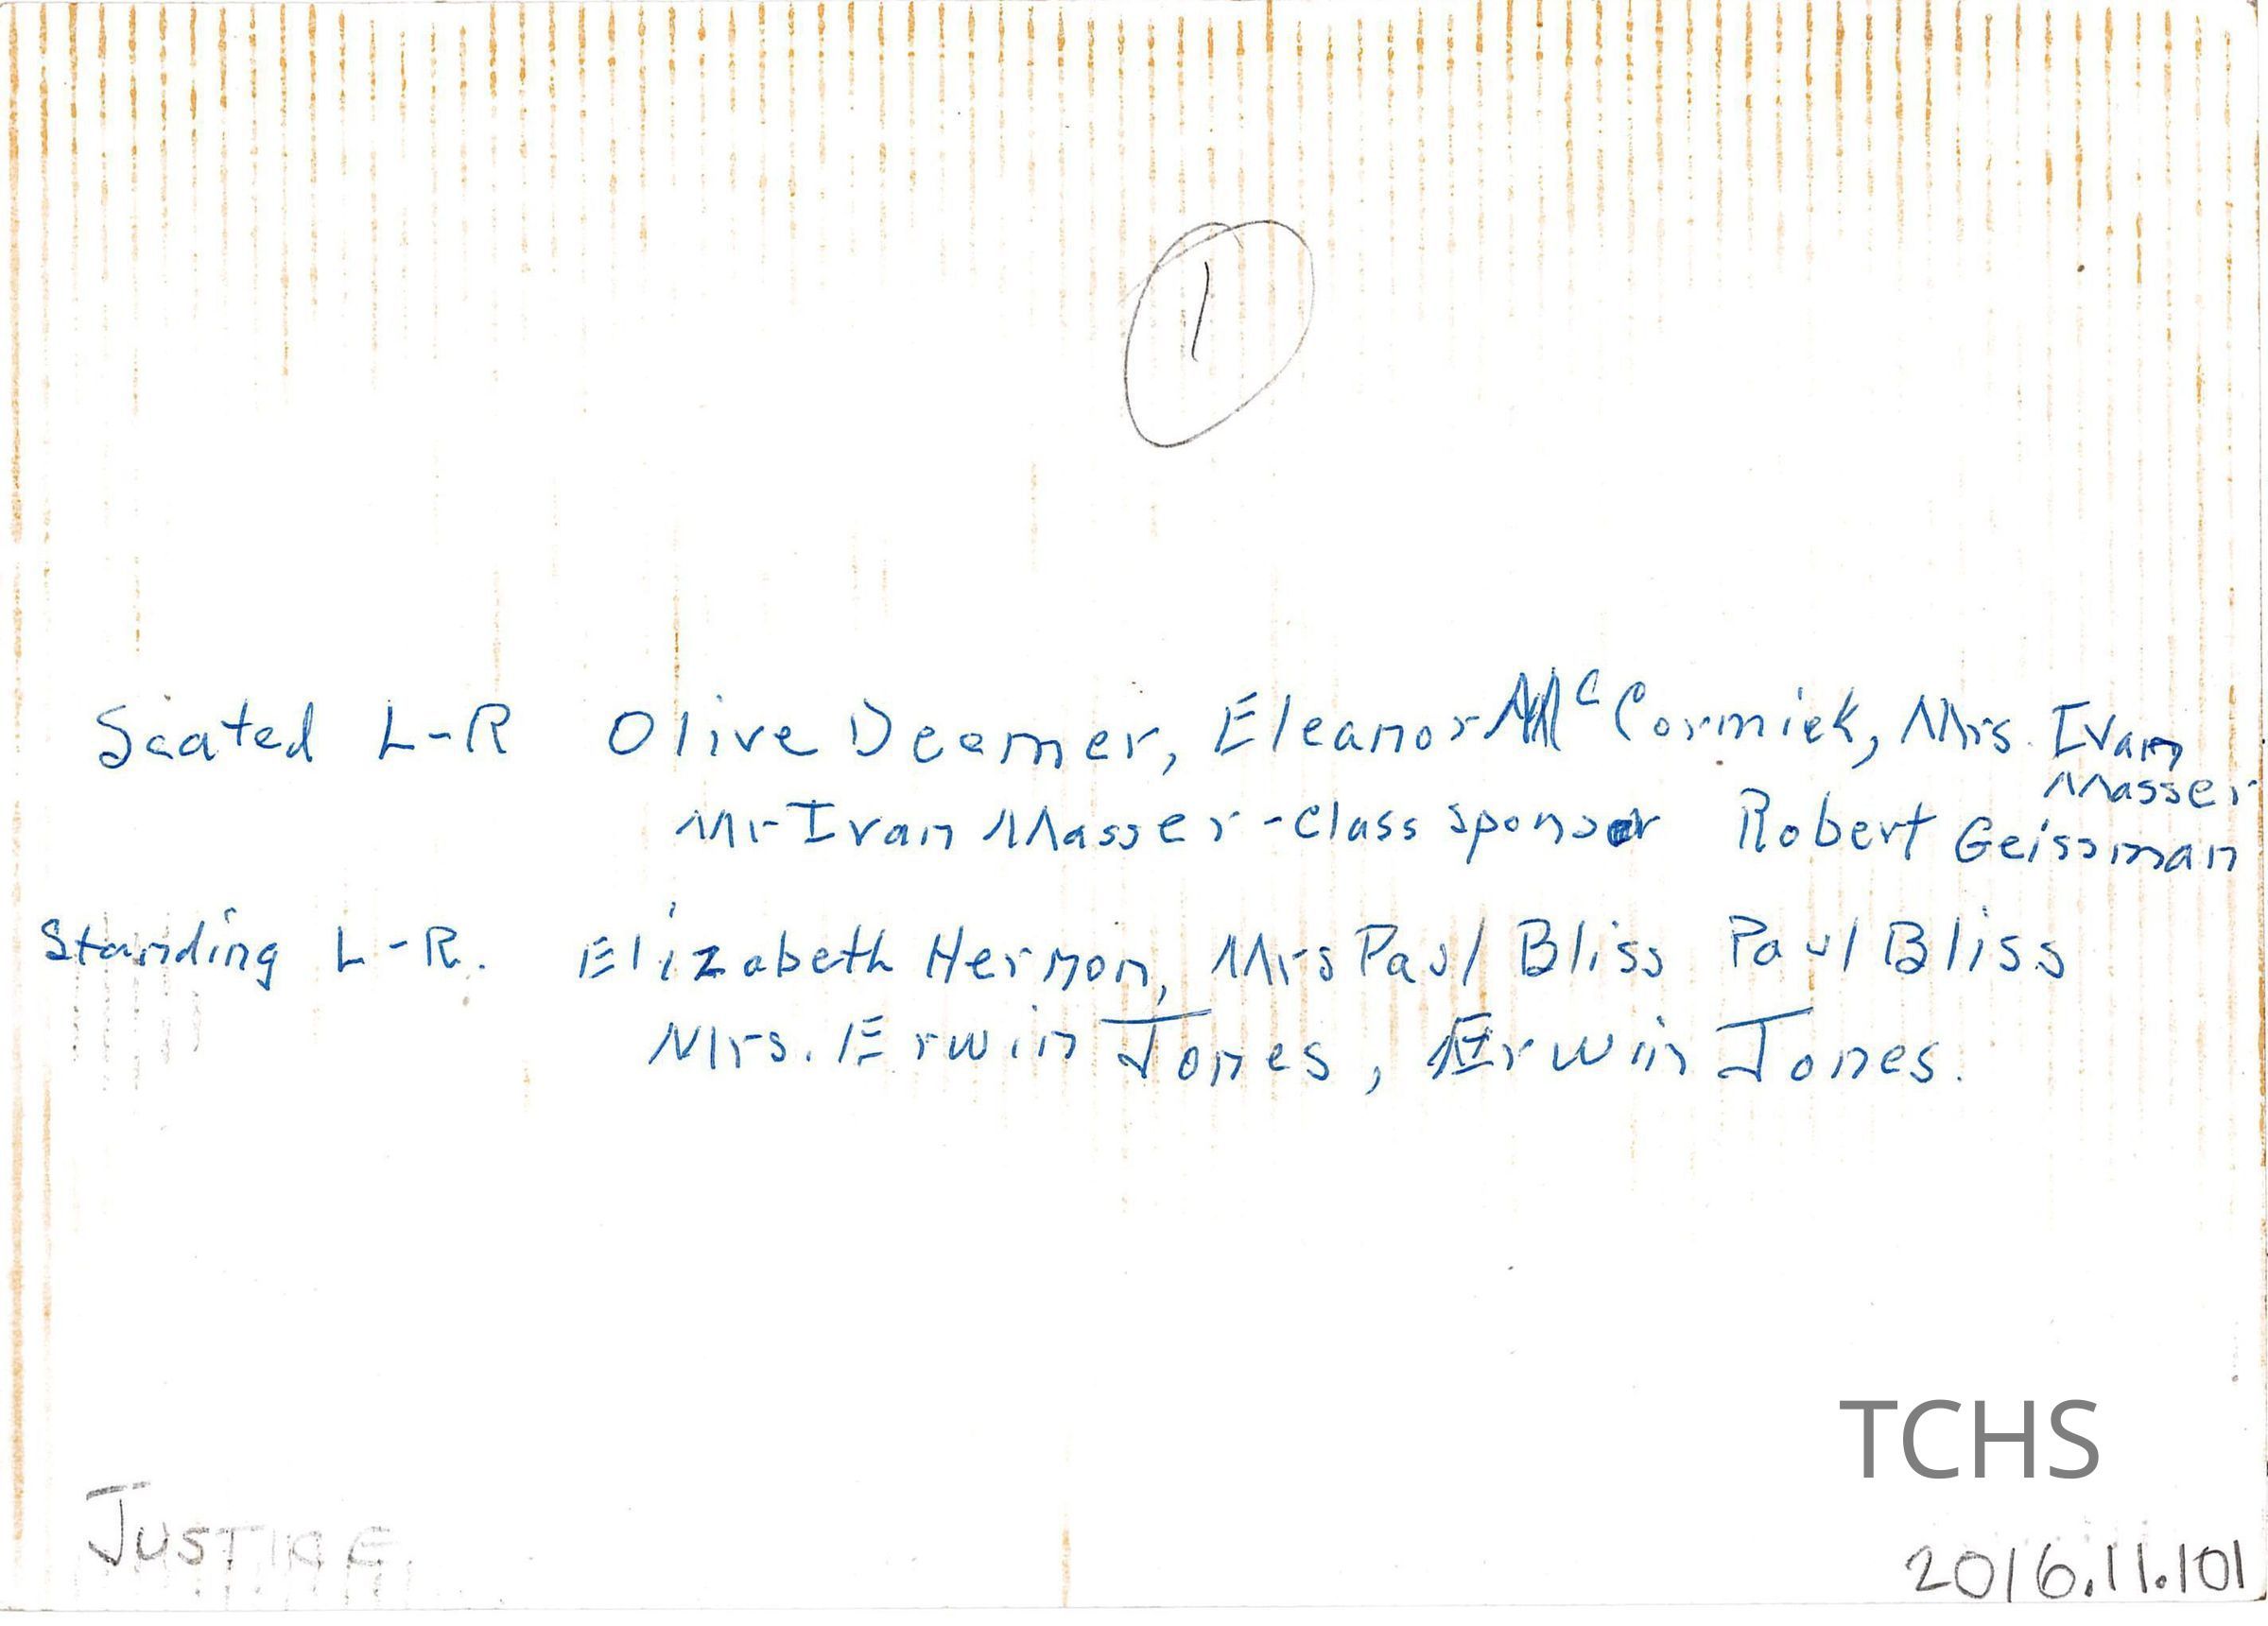 1
Seated L-R Olive Deamer, Eleanor McCormick, Mrs. Ivan
Masser
Mr Ivan Masser - class sponsor Robert Geissman
Standing L-R. Elizabeth Hermon, Mrs Paul Bliss Paul Bliss
Mrs. Erwin Jones, Erwin Jones.
TCHS
2016.11.101